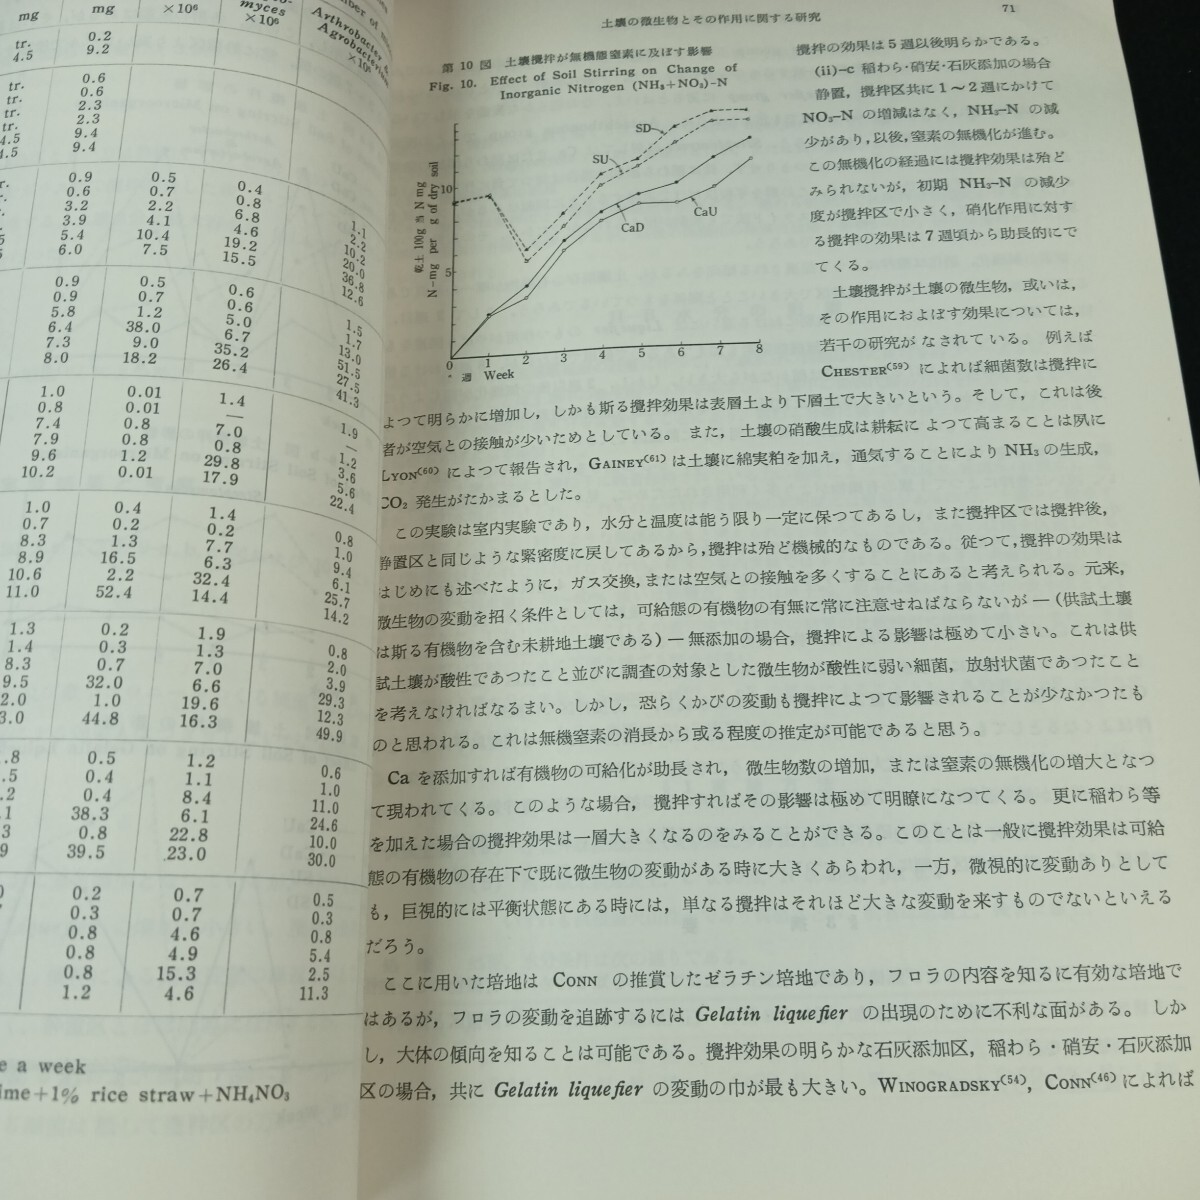 mg mg ×10⁶ myces ×10⁶ Arthrobacter & Agrobacterium ×10⁶
tr. 0.2
4.5 9.2
tr. 0.6
tr. 0.6
tr. 2.3
tr. 2.3
4.5 9.4
4.5 9.4
0.9 0.5 0.4 1.1
0.6 0.7 0.8 2.2
3.2 2.2 6.8 10.2
3.9 4.1 4.6 20.0
5.4 10.4 19.2 36.8
6.0 7.5 15.5 12.6
0.9 0.5 0.6 1.5
0.9 0.7 0.6 1.7
5.8 1.2 5.0 13.0
6.4 38.0 6.7 51.5
7.3 9.0 35.2 27.5
8.0 18.2 26.4 41.3
1.0 0.01 1.4 1.9
0.8 0.01 — —
7.4 0.8 7.0 1.2
7.9 0.8 0.8 3.6
9.6 1.2 29.8 5.6
10.2 0.01 17.9 22.4
1.0 0.4 1.4 0.8
0.7 0.2 0.2 1.0
8.3 1.3 7.7 9.4
8.9 16.5 6.3 6.1
10.6 2.2 32.4 25.7
11.0 52.4 14.4 14.2
1.3 0.2 1.9 0.8
1.4 0.3 1.3 2.0
8.3 0.7 7.0 3.9
9.5 32.0 6.6 29.3
2.0 1.0 19.6 12.3
3.0 44.8 16.3 49.9
.8 0.5 1.2 0.6
.5 0.4 1.1 1.0
.2 0.4 8.4 11.0
.1 38.3 6.1 24.6
3 0.8 22.8 10.0
9 39.5 23.0 30.0
0.2 0.7 0.5
0.3 0.7 0.3
0.8 4.6 0.8
0.8 4.9 5.4
0.8 15.3 2.5
1.2 4.6 11.3
e a week
ime+1% rice straw+NH₄NO₃
土壌の微生物とその作用に関する研究 71
第10図 土壌攪拌が無機態窒素に及ぼす影響
Fig. 10. Effect of Soil Stirring on Change of
Inorganic Nitrogen (NH₃+NO₃)-N
乾土100g当Nmg
N-mg per g of dry soil
10
5
SD
SU
CaD
CaU
0 1 2 3 4 5 6 7 8
週 Week
攪拌の効果は5週以後明らかである。
(ii)-c 稲わら・硝安・石灰添加の場合
静置，攪拌区共に1〜2週にかけて
NO₃-N の増減はなく，NH₃-N の減
少があり，以後，窒素の無機化が進む。
この無機化の経過には攪拌効果は殆ど
みられないが，初期 NH₃-N の減少
度が攪拌区で小さく，硝化作用に対す
る攪拌の効果は7週頃から助長的にで
てくる。
土壌攪拌が土壌の微生物，或いは，
その作用におよぼす効果については，
若干の研究が なされて いる。 例えば
CHESTER⁽⁵⁹⁾ によれば細菌数は攪拌に
よつて明らかに増加し，しかも斯る攪拌効果は表層土より下層土で大きいという。そして，これは後
者が空気との接触が少いためとしている。 また，土壌の硝酸生成は耕耘に よつて高まることは夙に
LYON⁽⁶⁰⁾ によつて報告され，GAINEY⁽⁶¹⁾ は土壌に綿実粕を加え，通気することにより NH₃ の生成，
CO₂ 発生がたかまるとした。
この実験は室内実験であり，水分と温度は能う限り一定に保つてあるし，また攪拌区では攪拌後，
静置区と同じような緊密度に戻してあるから，攪拌は殆ど機械的なものである。従つて，攪拌の効果は
はじめにも述べたように，ガス交換，または空気との接触を多くすることにあると考えられる。元来，
微生物の変動を招く条件としては，可給態の有機物の有無に常に注意せねばならないが ― (供試土壌
は斯る有機物を含む未耕地土壌である) ― 無添加の場合，攪拌による影響は極めて小さい。これは供
試土壌が酸性であつたこと並びに調査の対象とした微生物が酸性に弱い細菌，放射状菌であつたこと
を考えなければなるまい。しかし，恐らくかびの変動も攪拌によつて影響されることが少なかつたも
のと思われる。これは無機窒素の消長から或る程度の推定が可能であると思う。
Ca を添加すれば有機物の可給化が助長され， 微生物数の増加，または窒素の無機化の増大となつ
て現われてくる。 このような場合， 攪拌すればその影響は極めて明瞭になつてくる。 更に稲わら等
を加えた場合の攪拌効果は一層大きくなるのをみることができる。このことは一般に攪拌効果は可給
態の有機物の存在下で既に微生物の変動がある時に大きくあらわれ，一方，微視的に変動ありとして
も，巨視的には平衡状態にある時には，単なる攪拌はそれほど大きな変動を来すものでないといえる
だろう。
ここに用いた培地は CONN の推賞したゼラチン培地であり，フロラの内容を知るに有効な培地で
はあるが，フロラの変動を追跡するには Gelatin liquefier の出現のために不利な面がある。 しか
し，大体の傾向を知ることは可能である。攪拌効果の明らかな石灰添加区，稲わら・硝安・石灰添加
区の場合，共に Gelatin liquefier の変動の巾が最も大きい。WINOGRADSKY⁽⁵⁴⁾，CONN⁽⁴⁶⁾ によれば